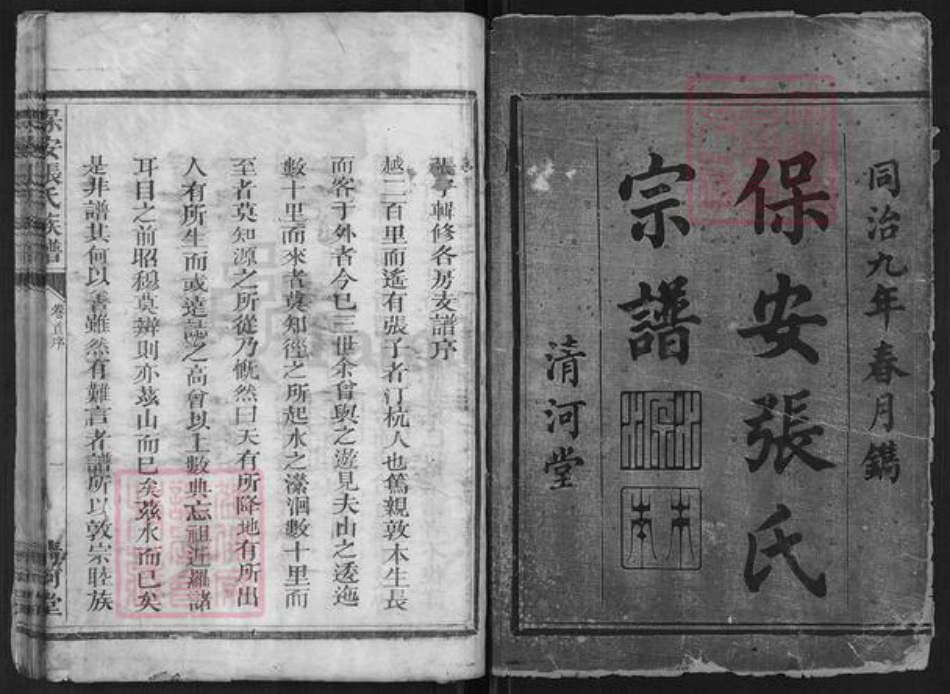 同治九年春月鐫
保安張氏
宗譜
清河堂
張亨輯修各房支譜序
越二百里而遙有張子者汀杭人也篤親敦本生長
而客于外者今已三世余曾與之遊見夫山之透迤
數十里而來者莫知徑之所起水之瀠洄數十里而
至者莫知源之所從乃慨然曰天有所降地有所出
人有所生而或遠誌之高曾以上數典忘祖近羅諸
耳目之前昭穆莫辨則亦茲山而已矣茲水而已矣
是非譜其何以善雖然有難言者譜所以敦宗睦族
保安張氏族譜
卷首序
一
清河堂